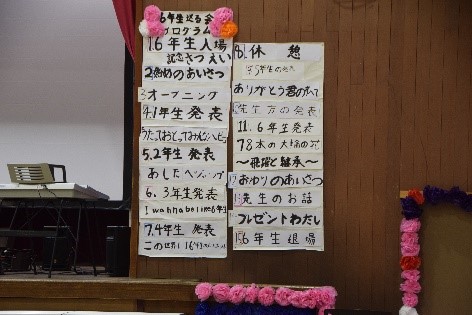 6年生送る会
プログラム
1.6年生入場
記念さつえい
2.始めのあいさつ
3.オープニング
4.1年生発表
うたっておどってみんなハッピー
5.2年生発表
あしたへジャンプ
6.3年生発表
I wanna be like 6年生
7.4年生発表
この世界に
8.休憩
9.5年生の発表
ありがとう君の
10.先生方の発表
11.6年生発表
78本の大輪の花
～飛躍と継承～
12.おわりのあいさつ
13.先生のお話
14.プレゼントわたし
15.6年生退場